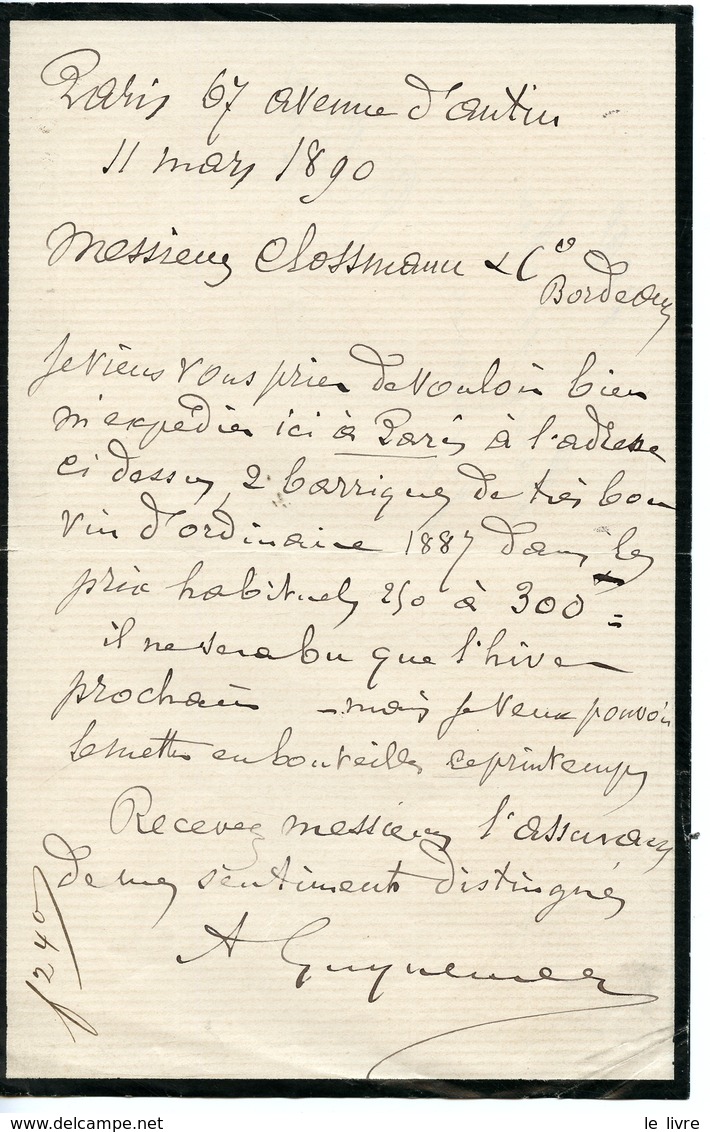 Paris 67 avenue d'antin
11 mars 1890
Messieurs Clossmann & Cie
Bordeaux
Je viens vous prier de vouloir bien
m'expédier ici à Paris à l'adresse
ci dessus, 2 barriques de très bon
vin d'ordinaire 1887 dans les
prix habituels 250 à 300f =
il ne sera bu que l'hiver
prochain - mais je veux pouvoir
le mettre en bouteilles ce printemps
Recevez messieurs l'assurance
de mes sentiments distingués
A Guynemer
240
le livre